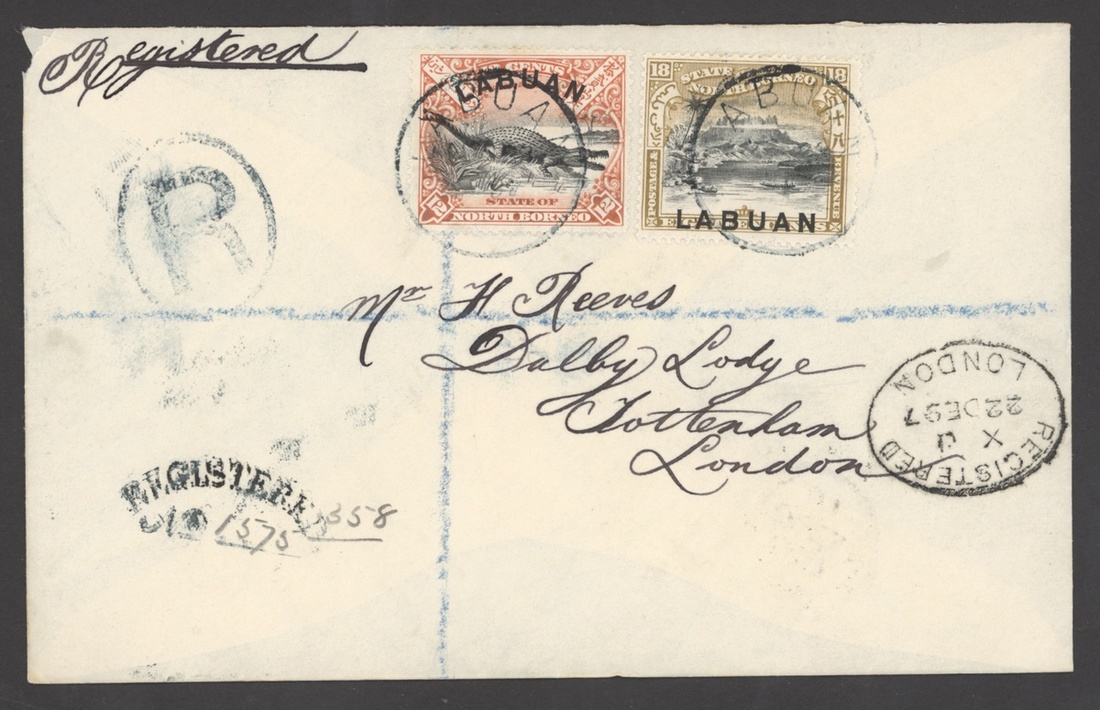 Registered
CENTS
LABUAN
12 12
STATE OF
NORTH BORNEO
LABUAN
18 18
STATE OF
NORTH BORNEO
十八
POSTAGE &
REVENUE
LABUAN
R
Mr H Reeves
Dalby Lodge
Tottenham
London
REGISTERED
LONDON
22 DE 97
X
REGISTERED
1575 358